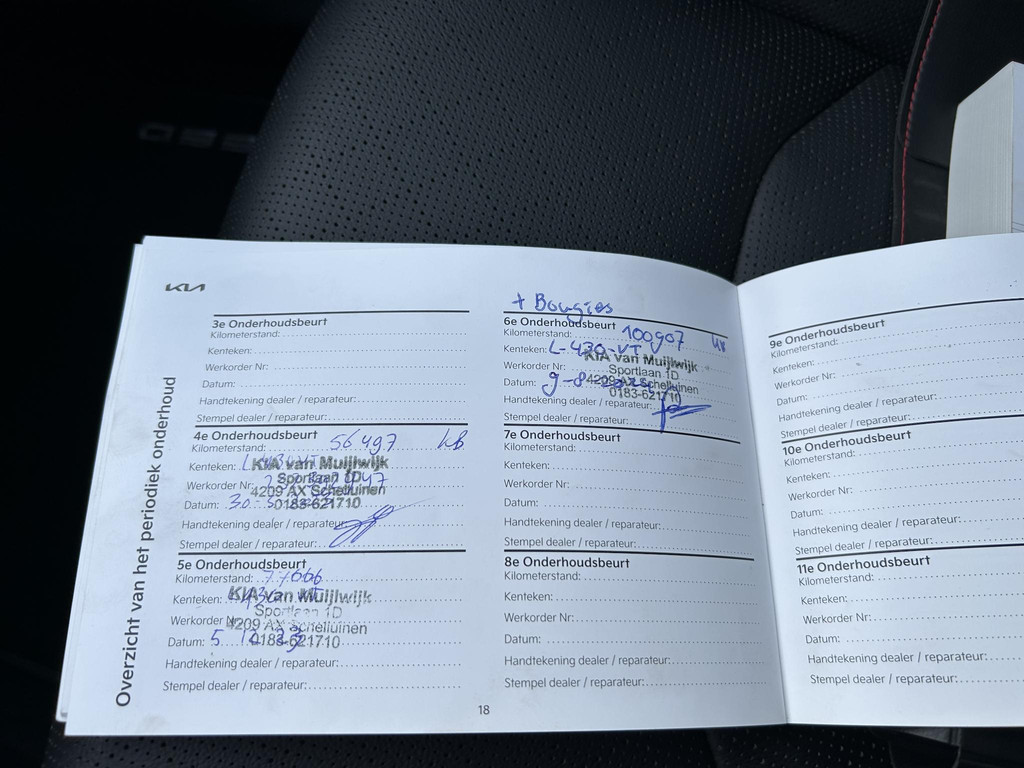 KIA
Overzicht van het periodiek onderhoud
3e Onderhoudsbeurt
Kilometerstand:
Kenteken:
Werkorder Nr:
Datum:
Handtekening dealer / reparateur:
Stempel dealer / reparateur:
4e Onderhoudsbeurt
Kilometerstand: 56497
Kenteken:
KIA van Muijlwijk
Werkorder Nr:
Sportlaan 1D
4209 AX Schelluinen
Datum: 30-5
0183-621710
Handtekening dealer / reparateur:
Stempel dealer / reparateur:
5e Onderhoudsbeurt
Kilometerstand: 77666
Kenteken:
KIA van Muijlwijk
Sportlaan 1D
Werkorder Nr:
4209 AX Schelluinen
Datum: 5
0183-621710
Handtekening dealer / reparateur:
Stempel dealer / reparateur:
+ Bougies
6e Onderhoudsbeurt
Kilometerstand: 100907
Kenteken: L-430-VT
KIA van Muijlwijk
Werkorder Nr:
Sportlaan 1D
Datum: 9-8
4209 AX Schelluinen
0183-621710
Handtekening dealer / reparateur:
Stempel dealer / reparateur:
7e Onderhoudsbeurt
Kilometerstand:
Kenteken:
Werkorder Nr:
Datum:
Handtekening dealer / reparateur:
Stempel dealer / reparateur:
8e Onderhoudsbeurt
Kilometerstand:
Kenteken:
Werkorder Nr:
Datum:
Handtekening dealer / reparateur:
Stempel dealer / reparateur:
18
9e Onderhoudsbeurt
Kilometerstand:
Kenteken:
Werkorder Nr:
Datum:
Handtekening dealer / reparateur:
Stempel dealer / reparateur:
10e Onderhoudsbeurt
Kilometerstand:
Kenteken:
Werkorder Nr:
Datum:
Handtekening dealer / reparateur:
Stempel dealer / reparateur:
11e Onderhoudsbeurt
Kilometerstand:
Kenteken:
Werkorder Nr:
Datum:
Handtekening dealer / reparateur:
Stempel dealer / reparateur: